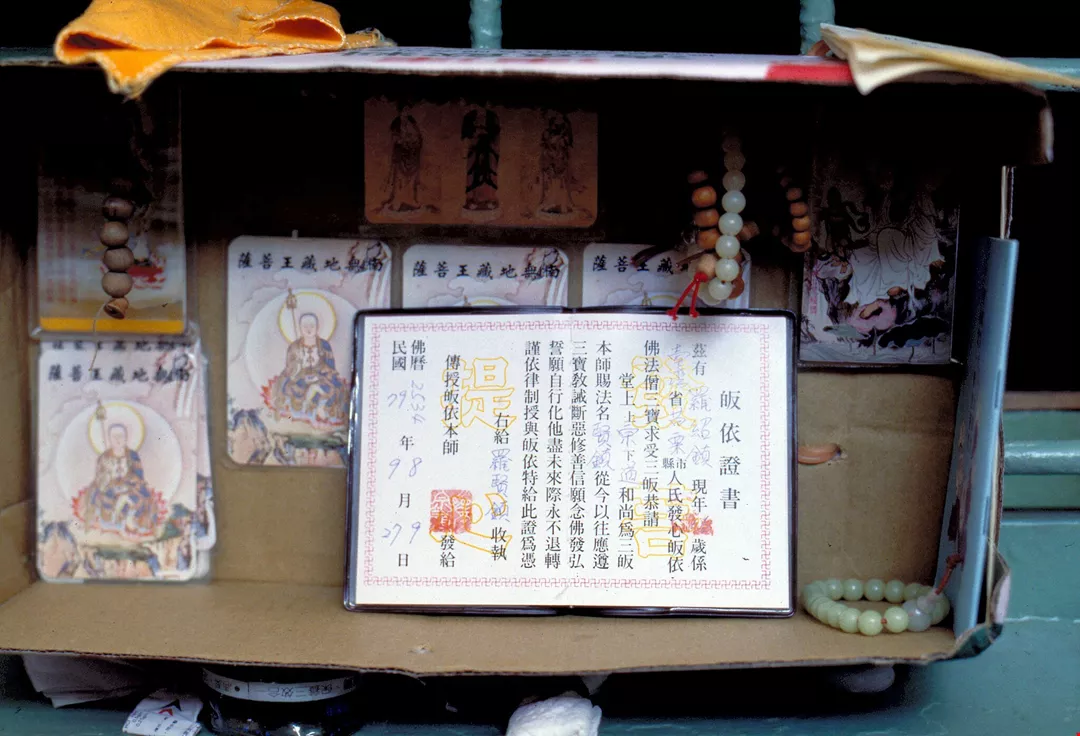 南無地藏王菩薩
南無地藏王菩薩
南無地藏王菩薩
菩薩
皈依證書
茲有 羅紹鎮 現年 歲係
省苗栗縣市人民發心皈依
佛法僧三寶求受三皈恭請
堂上上宗下通和尚為三皈
本師賜法名賢鎮從今以往應遵
三寶教誡斷惡修善信願念佛發弘
誓願自行化他盡未來際永不退轉
謹依律制授與皈依特給此證為憑
右給 羅賢鎮 收執
傳授皈依本師 發給
佛曆
民國 79 年 8 月 27 日